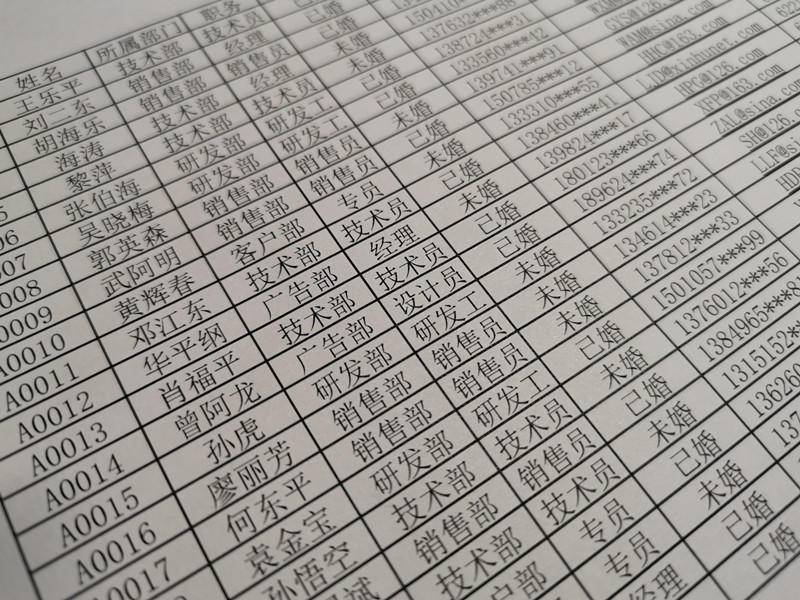 姓名
王乐平
刘二东
胡海乐
海涛
黎萍
张伯海
吴晓梅
郭英森
武阿明
黄辉春
邓江东
华平纲
肖福平
曾阿龙
孙虎
廖丽芳
何东平
袁金宝
孙悟空
A0010
A0011
A0012
A0013
A0014
A0015
A0016
A0017
所属部门
技术部
销售部
销售部
技术部
技术部
研发部
研发部
销售部
销售部
客户部
技术部
广告部
技术部
广告部
研发部
销售部
销售部
研发部
技术部
销售部
技术部
户部
职务
技术员
经理
销售员
经理
技术员
研发工
研发工
销售员
销售员
专员
技术员
经理
技术员
设计员
研发工
销售员
销售员
研发工
技术员
销售员
技术员
专员
专员
经理
已婚
未婚
已婚
已婚
未婚
已婚
未婚
已婚
未婚
已婚
已婚
未婚
未婚
未婚
已婚
未婚
已婚
未婚
已婚
未婚
已婚
已婚
137632***88
138724***31
133560***42
139741***91
150785***12
133310***55
138460***41
139824***17
180123***66
189624***74
133235***72
134614***23
137812***33
1501057***99
1376012***56
1384965***8
1315152**
GYS@126.
WAM@sina.com
HHC@163.com
LJD@xinhunet.com
HPG@126.com
XFP@163.com
ZAL@sina.com
SH@126.co
LLF@si
HDP